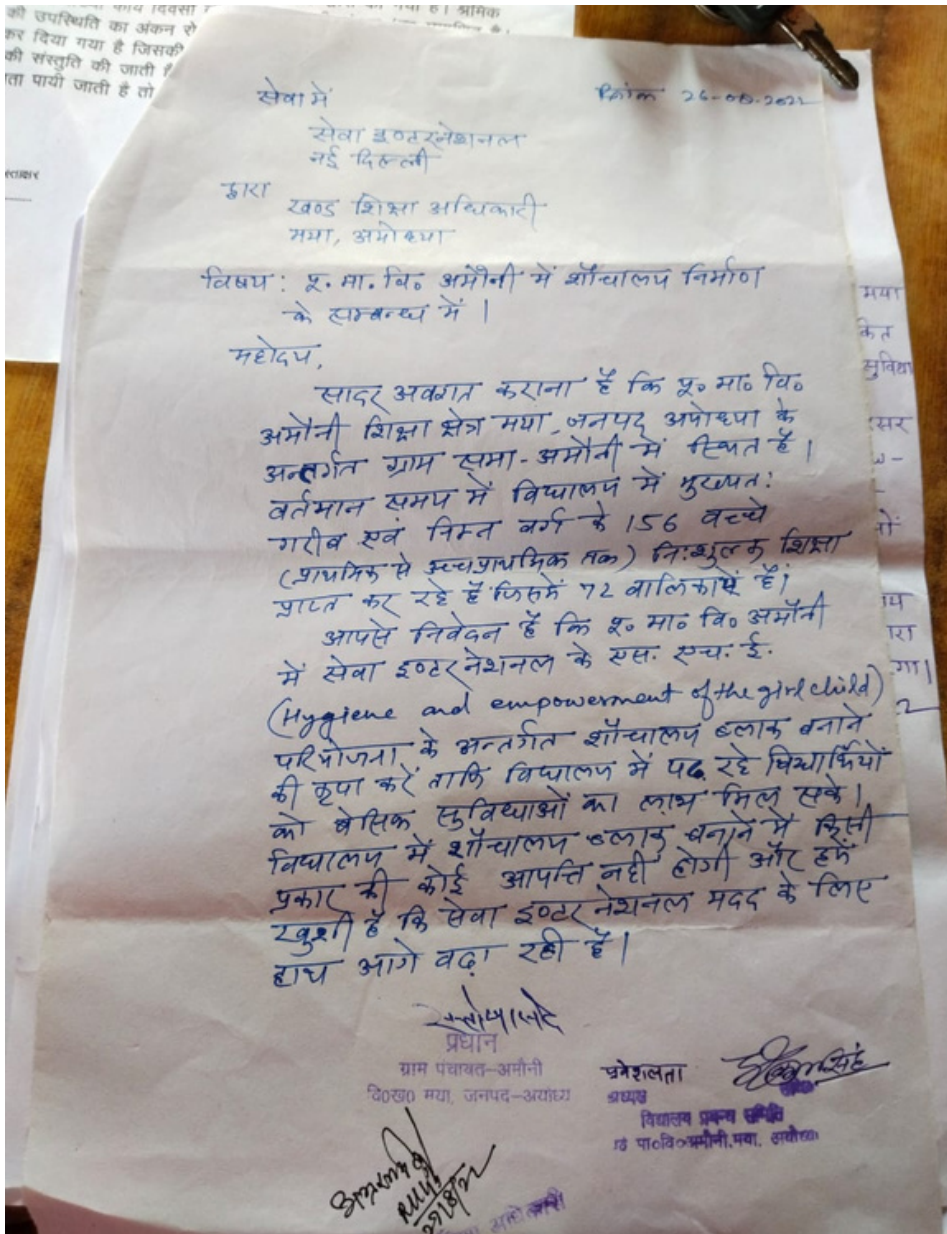 कार्य दिवसों
की उपस्थिति का अंकन
कर दिया गया है जिसकी
की संस्तुति की जाती है
ता पायी जाती है तो
स्ताक्षर
सेवा में
दिनांक 26-08-2022
सेवा इण्टरनेशनल
नई दिल्ली
द्वारा
खण्ड शिक्षा अधिकारी
मया, अयोध्या
विषय: पू. मा. वि० अमौनी में शौचालय निर्माण
के सम्बन्ध में।
महोदय,
सादर अवगत कराना है कि पू० मा० वि०
अमौनी शिक्षा क्षेत्र मया, जनपद अयोध्या के
अन्तर्गत ग्राम सभा-अमौनी में स्थित है।
वर्तमान समय में विद्यालय में मुख्यत:
गरीव एवं निम्न वर्ग के 156 वच्चे
(प्राथमिक से उच्चप्राथमिक तक) नि:शुल्क शिक्षा
प्राप्त कर रहे हैं जिसमें 72 वालिकायें हैं।
आपसे निवेदन है कि पू० मा० वि० अमौनी
में सेवा इण्टरनेशनल के एस. एच. ई.
(Hygiene and empowerment of the girl child)
परियोजना के अन्तर्गत शौचालय ब्लाक बनाने
की कृपा करें ताकि विद्यालय में पढ़ रहे विद्यार्थियों
को बेसिक सुविधाओं का लाभ मिल सके।
विद्यालय में शौचालय ब्लाक बनाने में किसी
प्रकार की कोई आपत्ति नहीं होगी और हमें
खुशी है कि सेवा इण्टरनेशनल मदद के लिए
हाथ आगे वढ़ा रही है।
प्रधान
ग्राम पंचायत-अमौनी
वि०ख० मया, जनपद-अयोध्या
प्रमेशलता
अध्यक्ष
विद्यालय प्रबन्ध समिति
पा०वि०अमौनी, मया, अयोध्या
मया
सुविधा